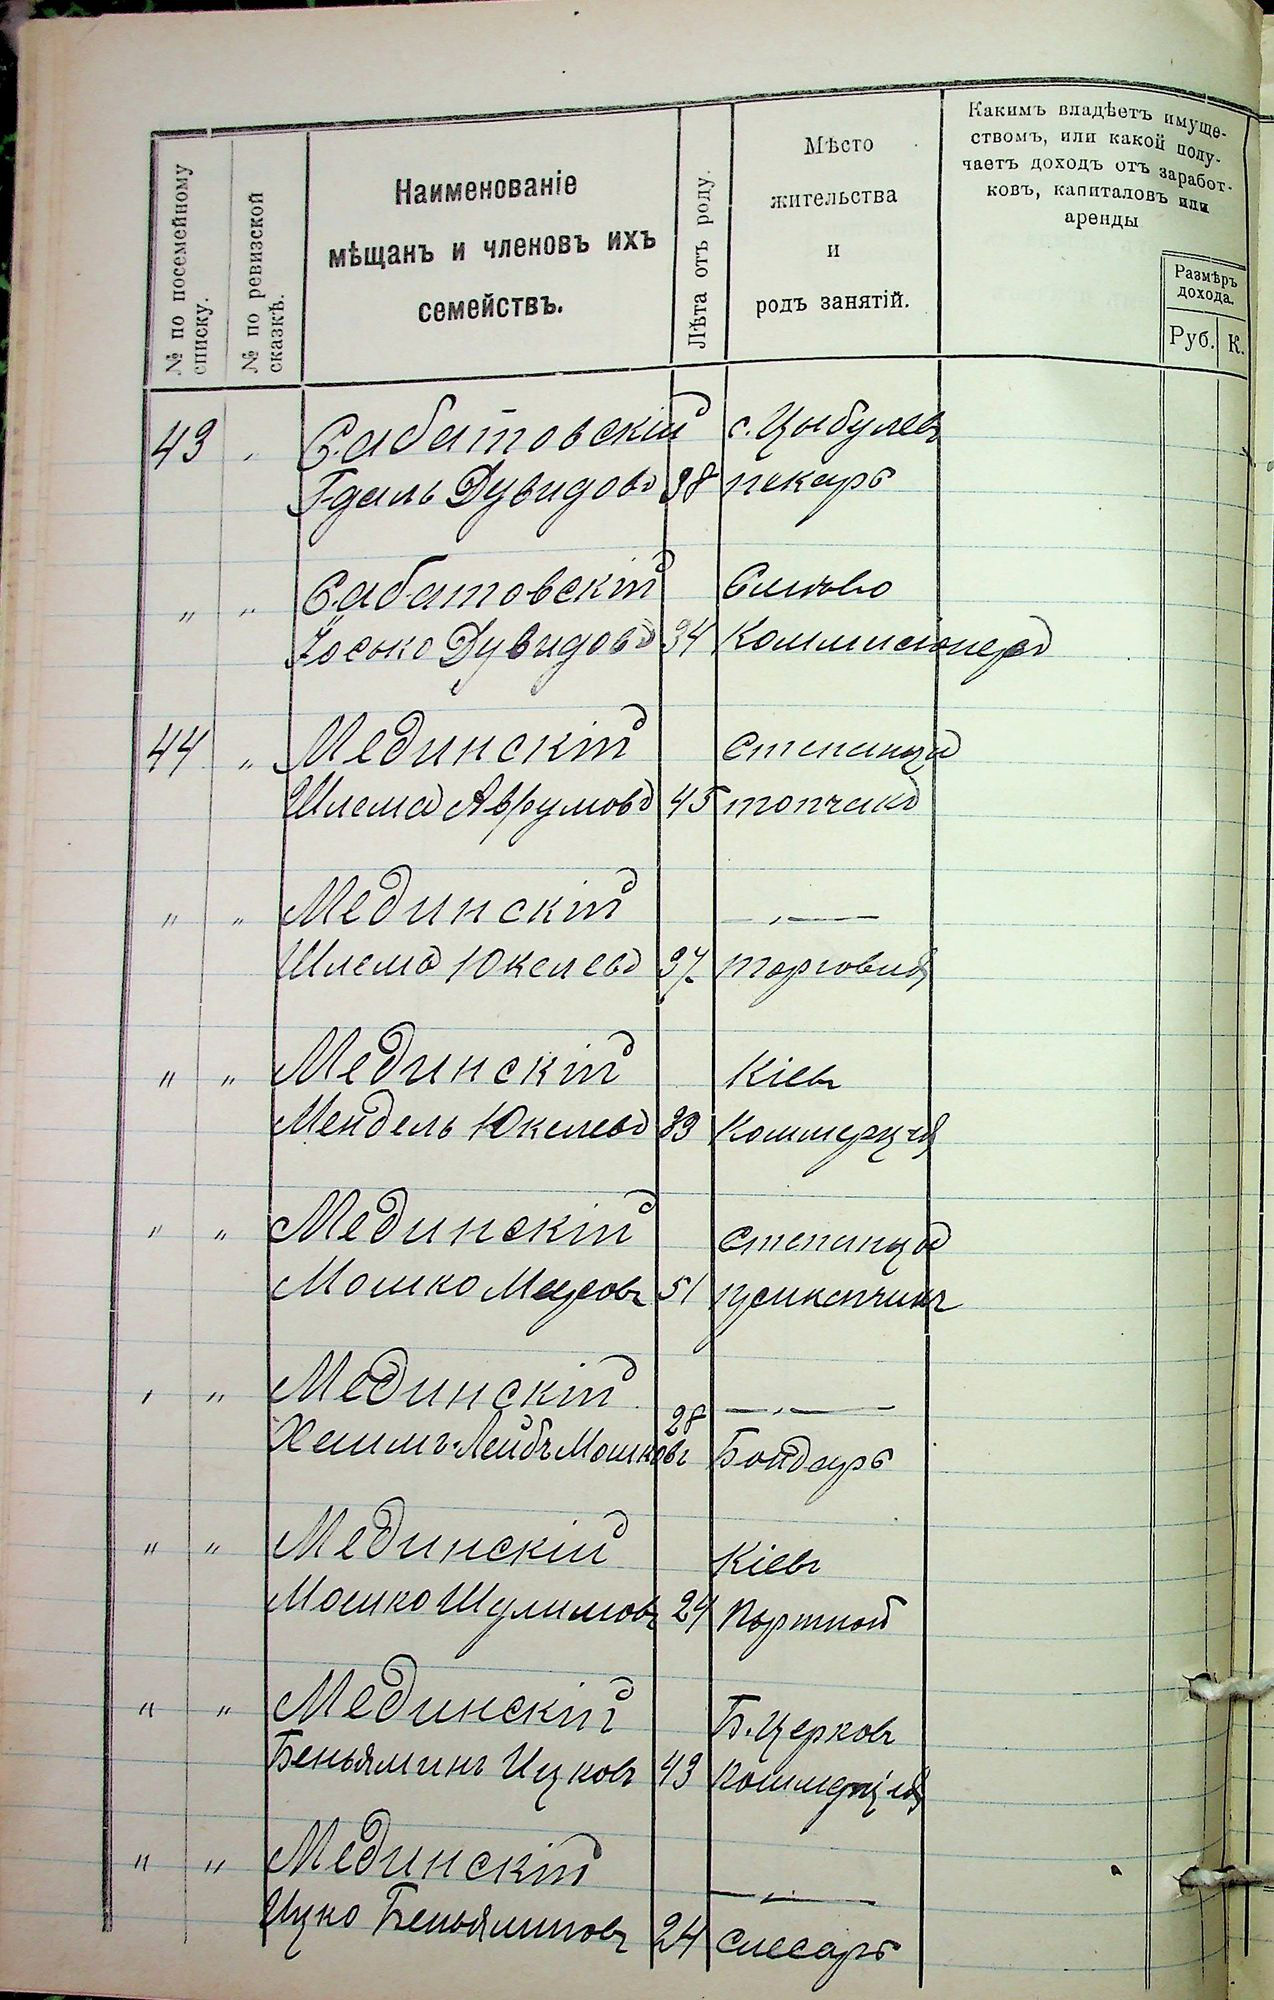 № по посемейному
списку.
№ по ревизской
сказкѣ.
Наименованіе
мѣщанъ и членовъ ихъ
семействъ.
Лѣта отъ роду.
Мѣсто
жительства
и
родъ занятій.
Какимъ владѣетъ имуще-
ствомъ, или какой полу-
чаетъ доходъ отъ заработ-
ковъ, капиталовъ или
аренды
Размѣръ
дохода.
Руб. К.
43 „ Сабатовскій с. Цыбулев
Гдаль Дувидовъ 38 пекарь
„ „ Сабатовскій
Іосько Дувидовъ 34 Коммисіонеръ
44 „ Мединскій Степанцы
Шлема Аврумовъ 45
„ „ Мединскій — „ —
Шлема Юкелевъ 37 торговля
„ „ Мединскій Кіевъ
Мендель Юкелевъ 39 Коммерція
„ „ Мединскій Степанцы
Мошко 51
„ „ Мединскій — „ —
Хаимъ-Лейбъ Мошковъ 28 Бондарь
„ „ Мединскій Кіевъ
Мошко Шулимовъ 24 Портной
„ „ Мединскій Б. Церковъ
Беньяминъ Ицковъ 43 Коммерція
„ „ Мединскій — „ —
Ицко Беньяминовъ 24 слесарь